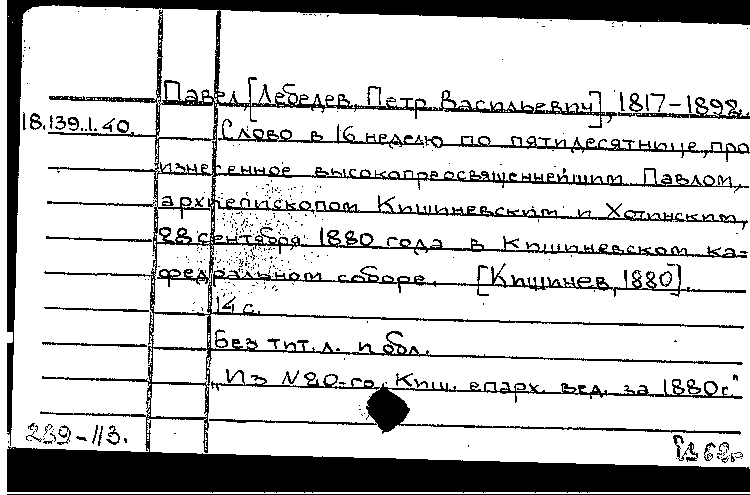 Павел, [Лебедев, Петр Васильевич], 1817-1892.
18.139.1.40.
Слово в 16 неделю по пятидесятнице, про
изнесенное высокопреосвященнейшим Павлом,
архиепископом Кишиневским и Хотинским,
28 сентября 1880 года в Кишиневском ка=
федральном соборе. [Кишинев, 1880].
14 с.
Без тит. л. и обл.
„Из № 20-го Киш. епарх. вед. за 1880 г."
239-113.